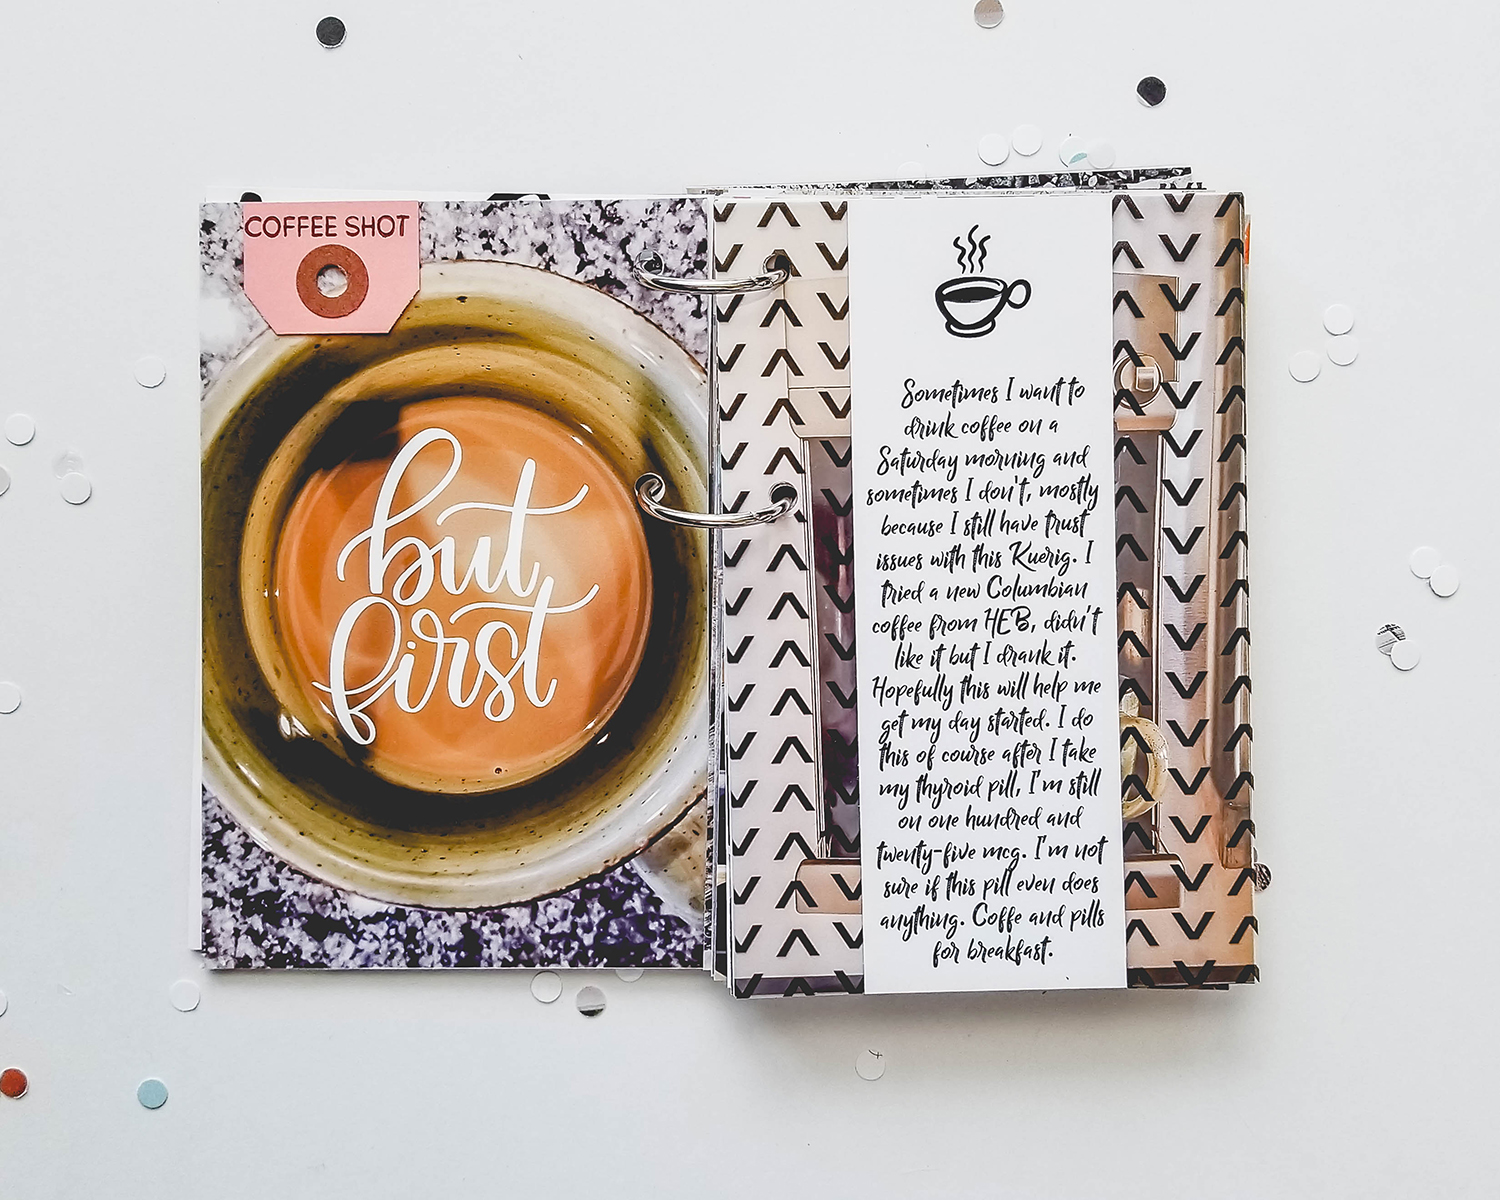 COFFEE SHOT
but
first
Sometimes I want to
drink coffee on a
Saturday morning and
sometimes I don't, mostly
because I still have trust
issues with this Kuerig. I
tried a new Columbian
coffee from HEB, didn't
like it but I drank it.
Hopefully this will help me
get my day started. I do
this of course after I take
my thyroid pill, I'm still
on one hundred and
twenty-five mcg. I'm not
sure if this pill even does
anything. Coffe and pills
for breakfast.